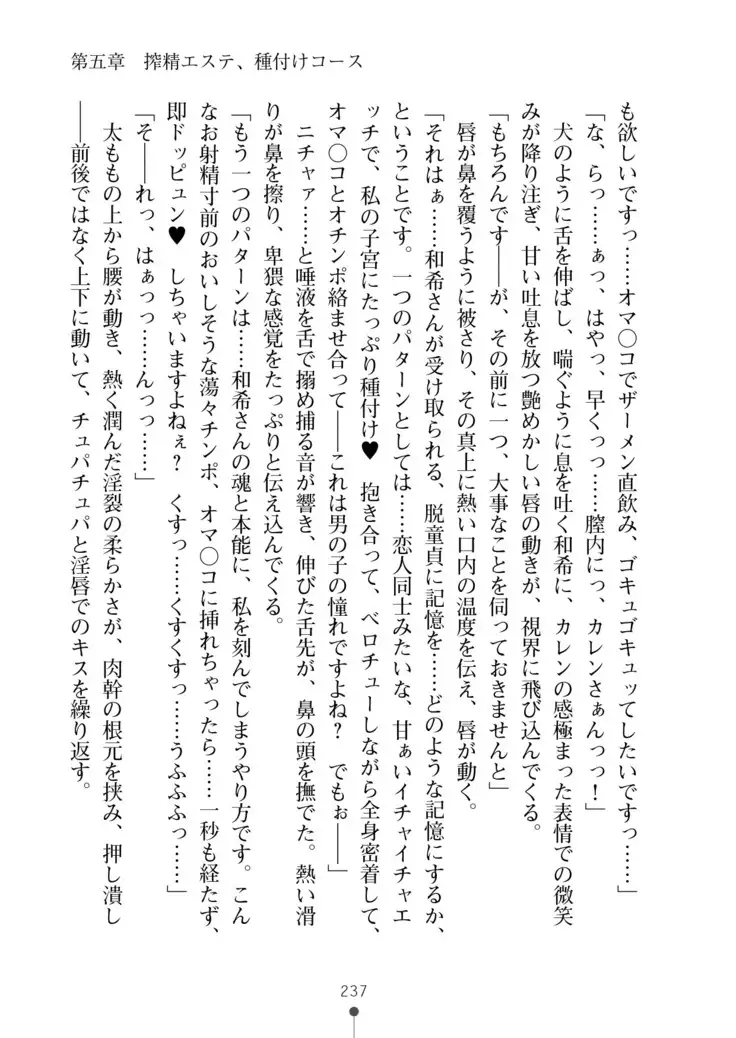 第五章　搾精エステ、種付けコース
も欲しいですっ……オマ〇コでザーメン直飲み、ゴキュゴキュッてしたいですっ……」
「な、らっ……ぁっ、はやっ、早くっっ……膣内にっ、カレンさぁんっっ！」
　犬のように舌を伸ばし、喘ぐように息を吐く和希に、カレンの感極まった表情での微笑
みが降り注ぎ、甘い吐息を放つ艶めかしい唇の動きが、視界に飛び込んでくる。
「もちろんです――が、その前に一つ、大事なことを伺っておきませんと」
　唇が鼻を覆うように被さり、その真上に熱い口内の温度を伝え、唇が動く。
「それはぁ……和希さんが受け取られる、脱童貞に記憶を……どのような記憶にするか、
ということです。一つのパターンとしては……恋人同士みたいな、甘ぁいイチャイチャエ
ッチで、私の子宮にたっぷり種付け♥　抱き合って、ベロチューしながら全身密着して、
オマ〇コとオチンポ絡ませ合って――これは男の子の憧れですよね？　でもぉ――」
　ニチャァ……と唾液を舌で搦め捕る音が響き、伸びた舌先が、鼻の頭を撫でた。熱い滑
りが鼻を擦り、卑猥な感覚をたっぷりと伝え込んでくる。
「もう一つのパターンは……和希さんの魂と本能に、私を刻んでしまうやり方です。こん
なお射精寸前のおいしそうな蕩々チンポ、オマ〇コに挿れちゃったら……一秒も経たず、
即ドッピュン♥　しちゃいますよねぇ？　くすっ……くすくすっ……うふふふっ……」
「そ――れっ、はぁっっ……んっっ……」
　太ももの上から腰が動き、熱く潤んだ淫裂の柔らかさが、肉幹の根元を挟み、押し潰し
――前後ではなく上下に動いて、チュパチュパと淫唇でのキスを繰り返す。
237